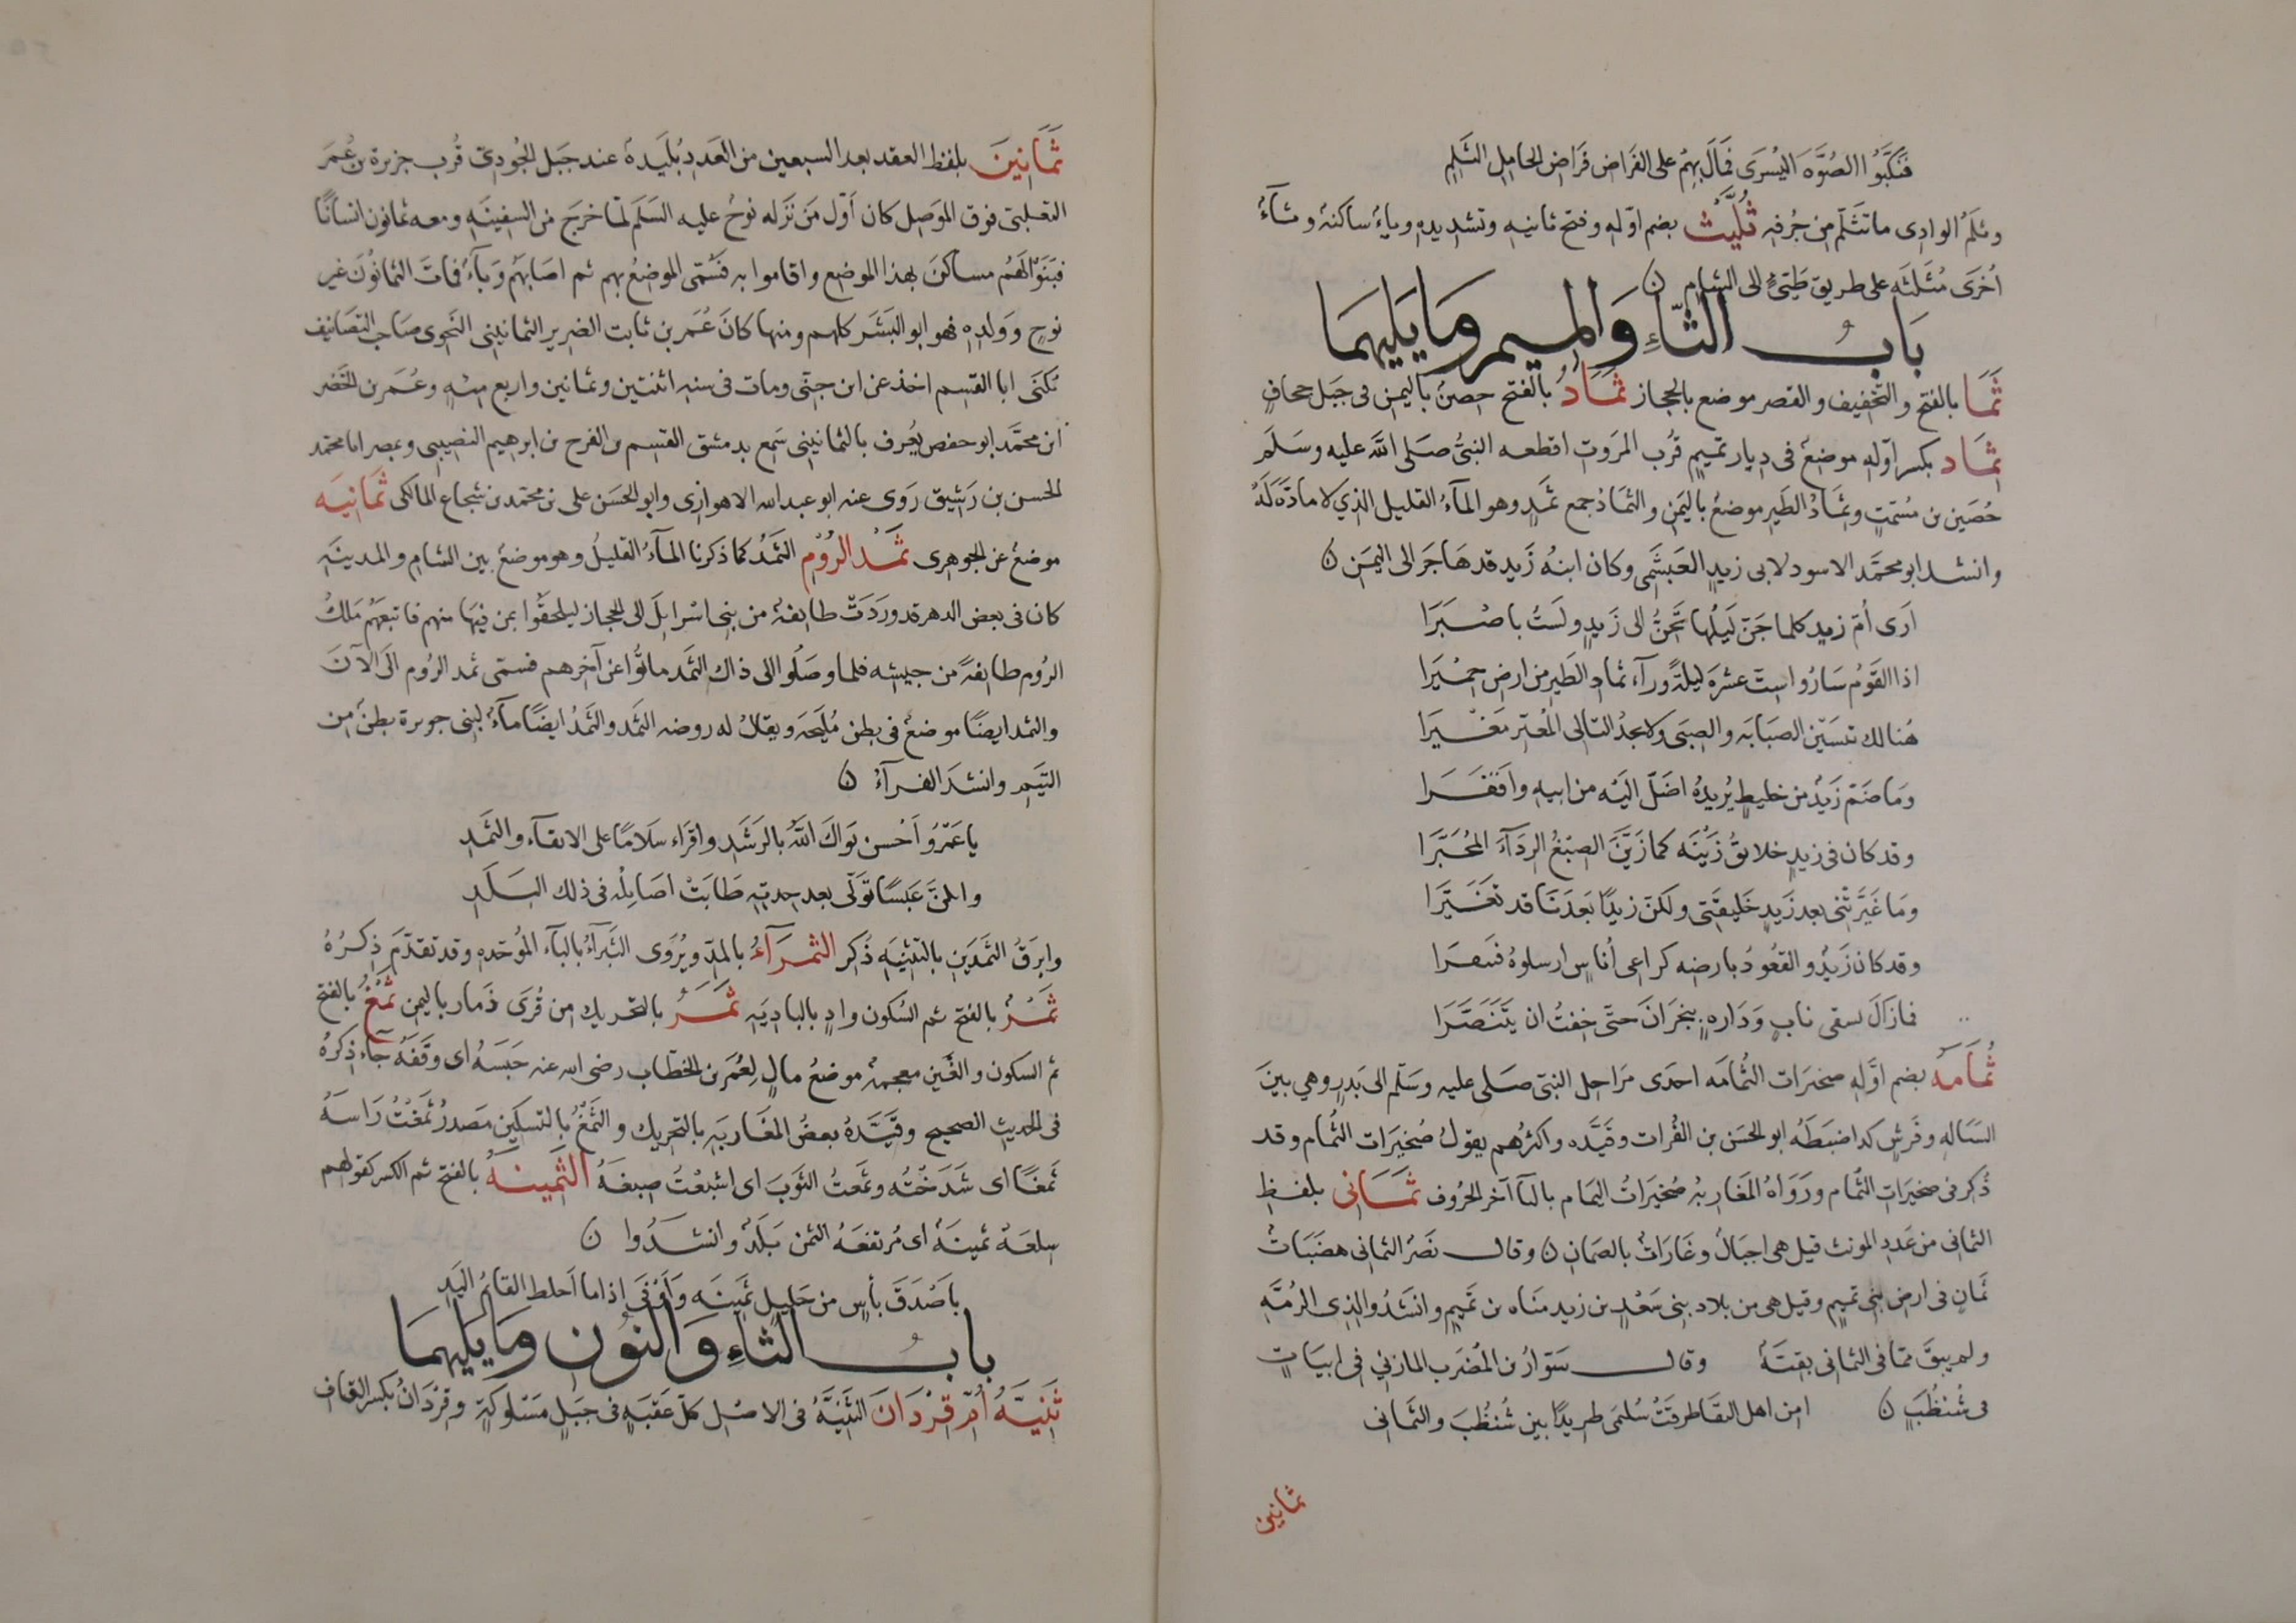 فنكبوا الصُّوَّه اليُسرَى فمَالَ بهِمُ على الفَراض فَراض الحامِلِ الثَلِمِ
وثلَمُ الوادِى ما تثَلّم من جُرفهِ ثُلَّيْث بضم اوّله وفتح ثانيه وتشديده وياءٌ ساكنة وثآءٌ
اُخرَى مُثَلثَه على طريق طَيّئٍ الى الشامِ ن
بَابُ الثّاءِ وَالمِيم وَمَا يَليهمَا
ثَمَا بالفتح والتخفيف والقصر موضع بالحجاز ثَمَادُ بالفتح حصنٌ باليمن فى جَبَل جحافٍ
ثِمَاد بكسر اوّله موضعٌ فى ديار تميمٍ قُرب المرَوت اقطعه النبىُّ صَلى الله عليه وسَلَم
حُصَين بن مُشمّتٍ وثِمَادُ الطَيرِ موضعٌ باليَمَن والثمَادُ جمع ثَمَدٍ وهو المآءُ القليل الذي لا مادَّه لَهُ
وانشد ابو محمَّد الاسود لابى زيدٍ العَبشَمى وكان ابنهُ زَيد قد هَاجَرَ الى اليمَن ن
اَرَى اُمّ زيدٍ كلما جَنّ لَيَلُها تحنُّ الى زَيدٍ ولَستُ باصْبَرَا
اذا القَوْمُ سَارُوا ستّ عشرَة ليلةً ورآء ثمادِ الطَيرِ من ارض حِمْيَرَا
هُنالك تنسَيْن الصَبابَه والصِبَى ولا تجدُ التالى المُعتِر مَغْيَرَا
ومَا ضَمّ زَيدٌ من خليطٍ يُريدُهُ اضَلَّ اليَه من ابيهِ وافقَرَا
وقد كان فى زيدٍ خلائقُ زَيْنَه كما زَيَّنَ الصِبْغُ الرِدَآءَ المُحَبَّرَا
ومَا غَيَّرَتْنى بعد زَيدٍ خَليقَتى ولكنّ زيدًا بَعدَنَا قد تغَيَّرَا
وقد كان زَيدٌ والقعُودُ بارضه كراعى اُناسٍ ارسلوهُ فبَصرا
فما زالَ يسقى نابٍ وَدَارهِ بنجرَانَ حتّى خِفتُ ان يتَنَصَّرَا
ثُمَامَه بضم اوَّله صخيرَات الثُمامَه احدى مَراحل النبىّ صَلى عليه وسَلّم الى بَدرٍ وهى بينَ
السَيّالهِ وفَرشٍ كدا ضبَطَه ابو الحسَن بن الفُرات وقيَّده واكثرُهم يقولُ صُخيرَات الثُمام وقد
ذُكر فى صخيرَاتِ الثُمام ورَوَاهُ المغَاربهُ صُخيرَاتُ اليَمام باليآ آخر الحُروف ثَمَانى بلفظِ
الثمانى من عَددِ المونث قيل هى اجبَالٌ وغَارَاتٌ بالصَمان ن وقال نَصرٌ الثمانى هضَبَاتٌ
ثمانٍ فى ارضِ بنى تميمٍ وقيل هى من بلاد بنى سَعْدٍ بن زيد مناه بن تميمٍ وانشَدُوا لذى الرُمَّهِ
ولم يبقَ مما فى الثمانى بقيَّةٌ وقال سَوّارُ بن المُضرَب المازنى فى ابيَاتٍ
فى شُنظُبٍ ن امِن اهل النقَا طرقَتْ سُلمَى طريدًا بين شُنظُبَ والثمانى
ثمانين
ثَمَانِينَ بلفظ العقد بعد السبعين من العَدد بُليَدة عند جَبَل الجُودِىّ قُرب جزيرة بن عُمَرَ
التغلبىّ فوق الموَصل كان اوّل مَن نَزله نوحٌ عليه السَلَم لمّا خرَجَ من السفينَهِ ومعه ثمانون انسانًا
فبَنَوْا لهَمُ مسَاكنَ بهذا الموضِع واقاموا به فسُمّى الموضعُ بهم ثم اصَابَهُم وَبآءٌ فماتَ الثمانُونَ غير
نوحٍ ووَلدِهِ فهو ابو البَشَر كلهم ومنها كانَ عُمَر بن ثابت الضرير الثمانينى النَحوى صَاحب التصَانيف
يُكنَى ابا القسم اخذ عن ابن جنّى ومات فى سنه اثنتين وثمانين واربع مئهٍ وعُمَر بن الخَضر
ابن محمَّد ابو حفص يُعرف بالثمانينى سَمع بدمشق القسم بن الفرح بن ابرهيم النصيبى وبمصر ابا محمد
الحسن بن رَشِيق رَوى عنه ابو عبد الله الاهوازى وابو الحَسَن على بن محمّد بن شجاع المالكى ثمَانيَه
موضعٌ عن الجوهرى ثَمَدُ الرُوْم الثمَدُ كما ذكرنا المآءُ القليلُ وهو موضعٌ بين الشام والمدينَه
كان فى بعض الدهر قد ورَدَتْ طايفةٌ من بنى اسْرايلَ الى الحجاز ليلحقُوا بمن فيهَا منهم فاتبعَهُم مَلكُ
الرُوم طايفةً من جيشه فلما وصَلُوا الى ذاك الثمَد ماتُوا عن آخرهم فسمى ثمد الروم الَى الآنَ
والثمد ايضًا موضعٌ فى بطن مُليَحَه ويقالُ له روضه الثمَد والثمَدُ ايضًا مآءٌ لبنى حويرة بطنٌ من
التيَم وانشدَ الفرآءُ ن
يا عَمْرُو اَحْسن نوَاكَ اللهُ بالرَشَدِ واقَراء سلَامًا على الانقآء والثمَدِ
وابكنَّ عَبسًا توَلّى بعد جدتهِ طَابَتْ اصَايلُه فى ذلك البَلَدِ
وابرَقُ الثمَدَين بالتثنيَهِ ذُكر الثمرَآءُ بالمدّ ويُروَى الثَبرآءُ بالبآء المُوحّده وقد تقدّمَ ذِكرُهُ
ثَمْرُ بالفتح ثم السُكون وادٍ بالبادِيَه ثَمَرُ بالتحريك من قُرَى ذَمار باليمن ثَمْغُ بالفتح
ثم السكون والغَين معجمةٌ موضعُ مالٍ لِعُمَر بن الخطّاب رضى الله عنه حَبَسَهُ اى وقَفَهُ جآء ذكرُهُ
فى الحديث الصحيح وقيَّدَهُ بعضُ المغَاربَهِ بالتحريك والثَمْغُ بالتسكين مَصدرُ ثَمغْتُ رَاسَهُ
ثَمغًا اى شَدَخْتُه وثمَعتُ الثوَبَ اى اشبَعْتُ صِبغهُ الثَمِينَهُ بالفتح ثم الكسر كقولهم
سِلعَةٌ ثمينَهٌ اى مُرتفعَهُ الثمن بَلَدٌ وانشدُوا ن
باَصْدَقَ بأسٍ من خَليلِ ثَمِينَه وَاَوْفَى اذا ما اَخلط القائمُ اليَدِ
بابُ الثاءِ وَالنوُن ومَا يَليهمَا
ثَنيَّهُ اُمّ قِرْدَانَ الثَنِيَّهُ فى الاصْل كلّ عَقَبَهٍ فى جَبَلٍ مَسْلوكَةٍ وقِرْدَانُ بكسر القاف